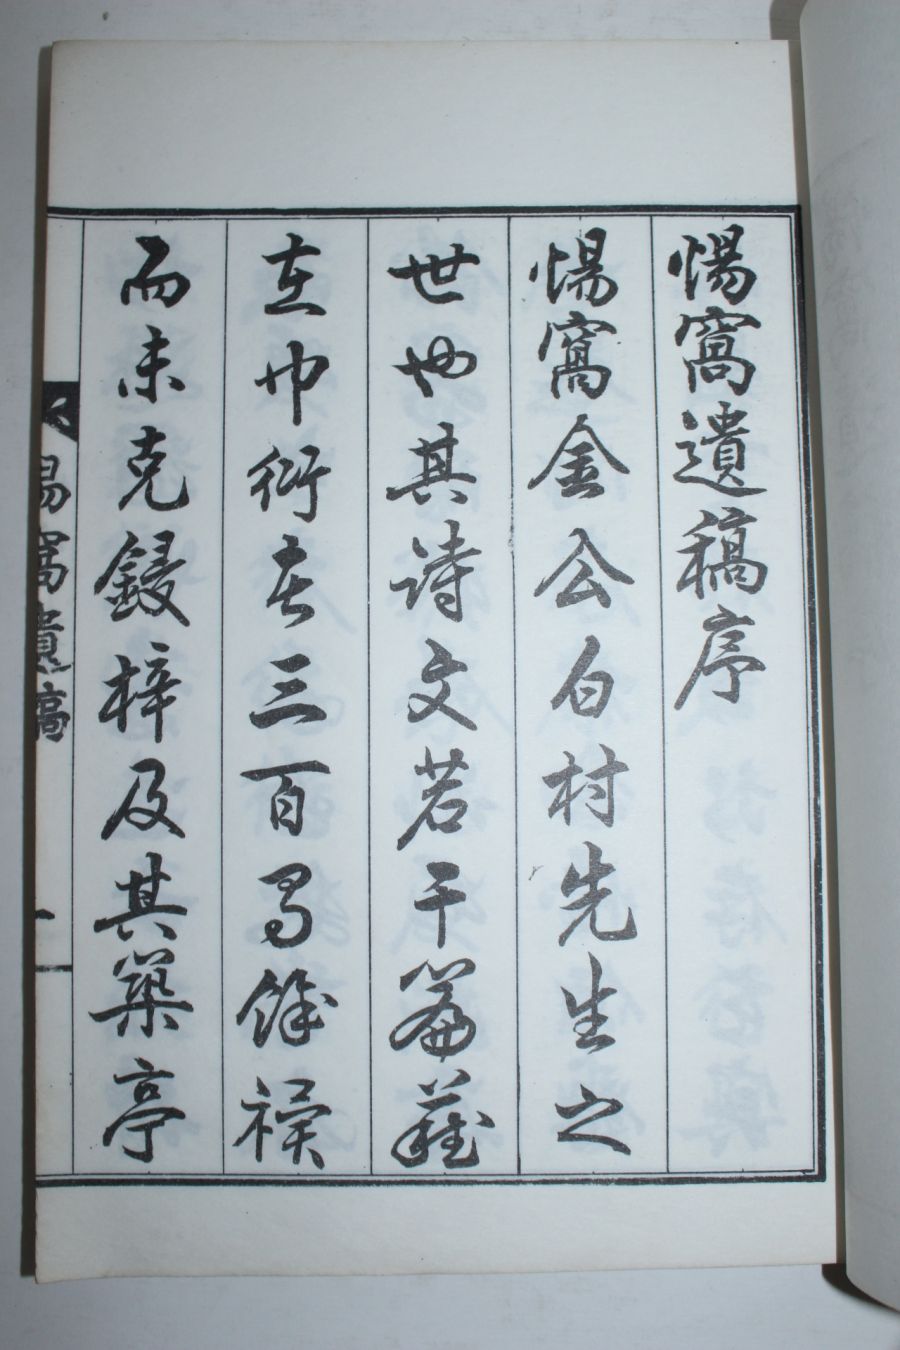 惕窩遺稿序
惕窩金公白村先生之
世也其詩文若干篇藏
在巾衍者三百餘禩
而未克鋟梓及其築亭
惕窩遺稿
一